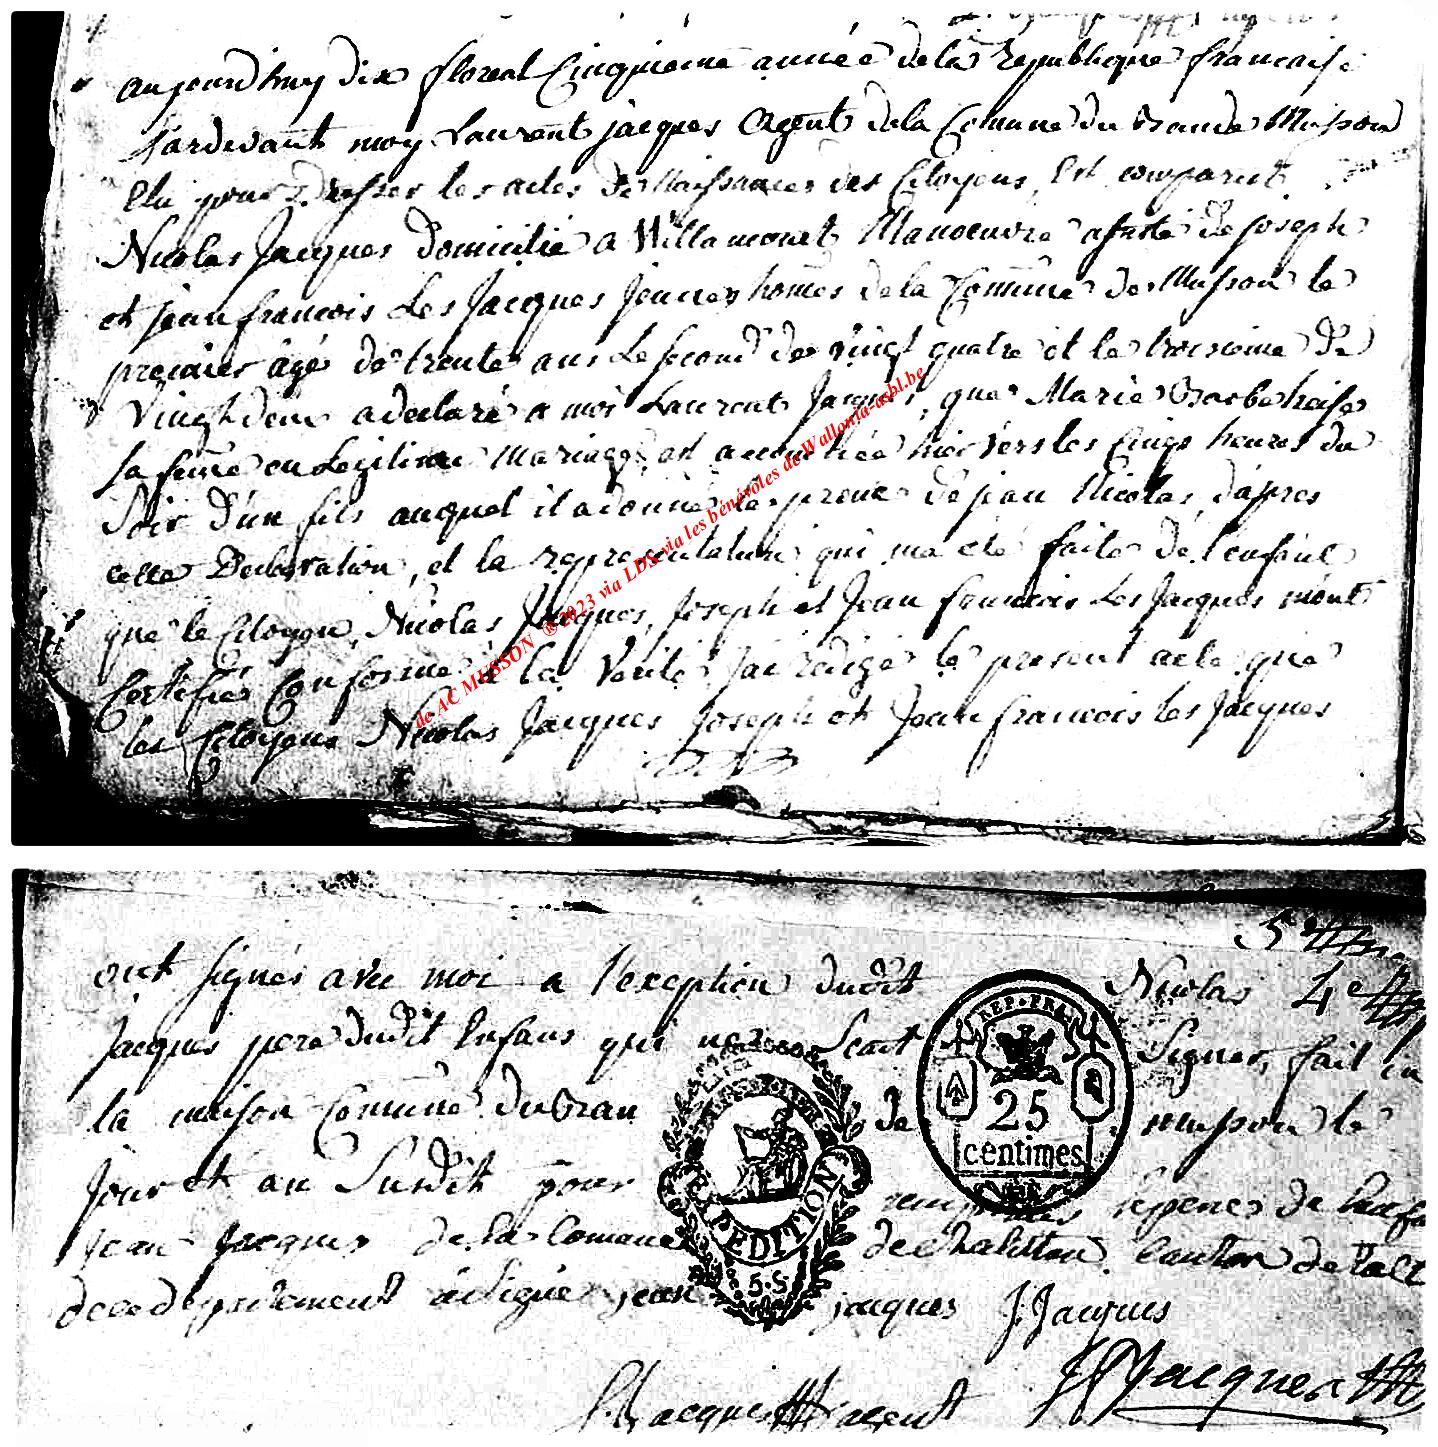 aujourdhuy dix floreal Cinquieme année de la republique francaise
Pardevant moy Laurent jacques Agent de la Comune du Grande Musson
Elu pour Dresser les actes De Naissances des Citoyens, Est comparut
Nicolas Jacques Domicilié a Willamont Manoeuvre assisté de joseph
et jean francois Les Jacques jeunes homes de la Comune de Musson le
premier âgé de trente ans Le second de vingt quatre et le troisieme de
Vingt deux a declaré a moi Laurent Jacques, que Marie Barbe
sa feme en Legitime Mariage, est accouchée hier vers les Cinqs heures du
Soir D'un fils auquel il a donné le prenom de jean Nicolas, d'apres
cette Declaration, et la representation qui ma été faite de l'enfant
que le Citoyen Nicolas Jacques, Joseph et Jean francois Les Jacques m'ont
Certifiés Conforme à la Verité, j'ai redigé le present acte que
les Citoyens Nicolas Jacques Joseph et Jean francois les Jacques
de AC MUSSON ® 2023 via LDS via les bénévoles de Wallonia-asbl.be
ont signés avec moi a l'exception dudit Nicolas
Jacques pere dudit Enfans qui ne Scait Signer, fait en
la maison Comune du Gran de musson le
Jour et an Susdit pour
Jean Jacques de la Comune de chatillon Canton de
de ce departement à signé jean jacques J. Jacques
REP. FRA.
25
centimes
EXPEDITION
5.S
L. Jacques agent
JF Jacques